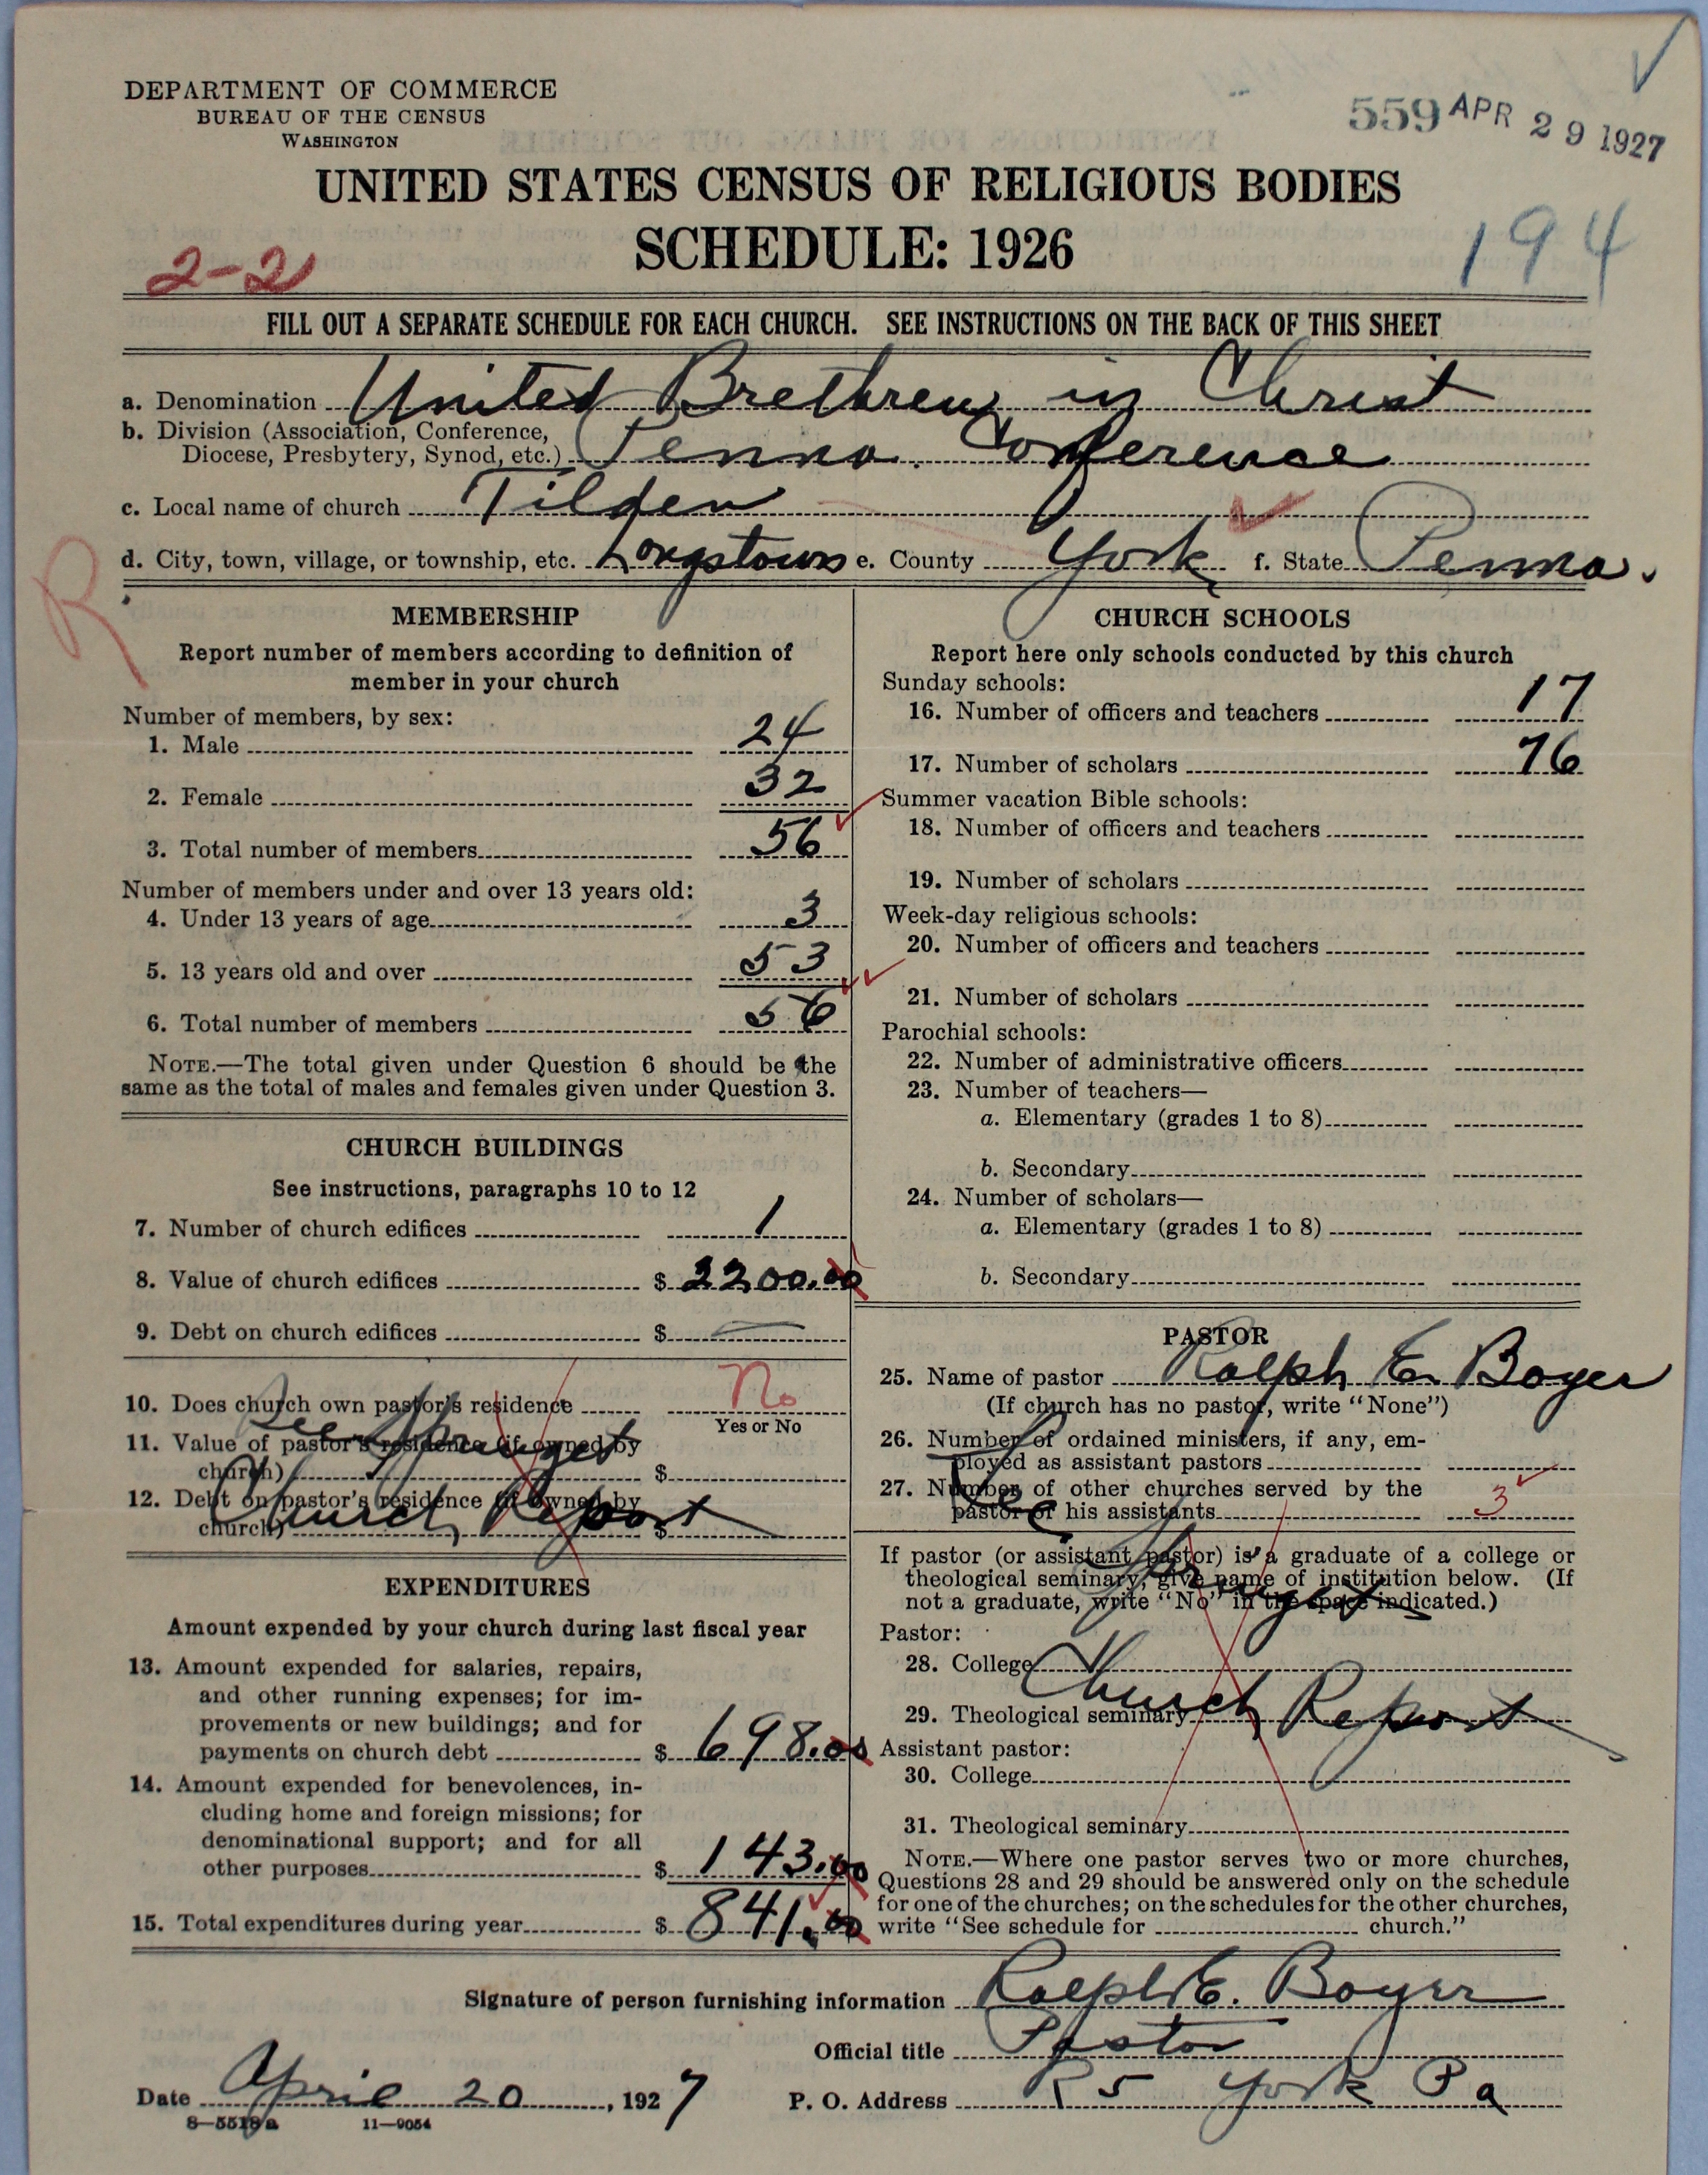 DEPARTMENT OF COMMERCE
BUREAU OF THE CENSUS
WASHINGTON
559 APR 29 1927
UNITED STATES CENSUS OF RELIGIOUS BODIES
SCHEDULE: 1926
2-2
194
FILL OUT A SEPARATE SCHEDULE FOR EACH CHURCH. SEE INSTRUCTIONS ON THE BACK OF THIS SHEET
a. Denomination United Brethren in Christ
b. Division (Association, Conference,
Diocese, Presbytery, Synod, etc.) Penna. Conference
c. Local name of church Tilden
d. City, town, village, or township, etc. Longstown e. County York f. State Penna.
R
MEMBERSHIP
Report number of members according to definition of
member in your church
Number of members, by sex:
1. Male 24
2. Female 32
3. Total number of members 56
Number of members under and over 13 years old:
4. Under 13 years of age 3
5. 13 years old and over 53
6. Total number of members 56
NOTE.—The total given under Question 6 should be the
same as the total of males and females given under Question 3.
CHURCH BUILDINGS
See instructions, paragraphs 10 to 12
7. Number of church edifices 1
8. Value of church edifices $ 2200.00
9. Debt on church edifices $ —
10. Does church own pastor's residence No
Yes or No
11. Value of pastor's residence (if owned by
church) $
12. Debt on pastor's residence (if owned by
church) $
See
Church Report
EXPENDITURES
Amount expended by your church during last fiscal year
13. Amount expended for salaries, repairs,
and other running expenses; for im-
provements or new buildings; and for
payments on church debt $ 698.00
14. Amount expended for benevolences, in-
cluding home and foreign missions; for
denominational support; and for all
other purposes $ 143.00
15. Total expenditures during year $ 841.00
CHURCH SCHOOLS
Report here only schools conducted by this church
Sunday schools:
16. Number of officers and teachers 17
17. Number of scholars 76
Summer vacation Bible schools:
18. Number of officers and teachers
19. Number of scholars
Week-day religious schools:
20. Number of officers and teachers
21. Number of scholars
Parochial schools:
22. Number of administrative officers
23. Number of teachers—
a. Elementary (grades 1 to 8)
b. Secondary
24. Number of scholars—
a. Elementary (grades 1 to 8)
b. Secondary
PASTOR
25. Name of pastor Ralph E. Boyer
(If church has no pastor, write "None")
26. Number of ordained ministers, if any, em-
ployed as assistant pastors
27. Number of other churches served by the
pastor or his assistants 3
If pastor (or assistant pastor) is a graduate of a college or
theological seminary, give name of institution below. (If
not a graduate, write "No" in the space indicated.)
See
Pastor:
28. College
Church Report
29. Theological seminary
Assistant pastor:
30. College
31. Theological seminary
NOTE.—Where one pastor serves two or more churches,
Questions 28 and 29 should be answered only on the schedule
for one of the churches; on the schedules for the other churches,
write "See schedule for church."
Signature of person furnishing information Ralph E. Boyer
Official title Pastor
Date April 20, 1927 P. O. Address R 5 York Pa
8—5518a 11—9054